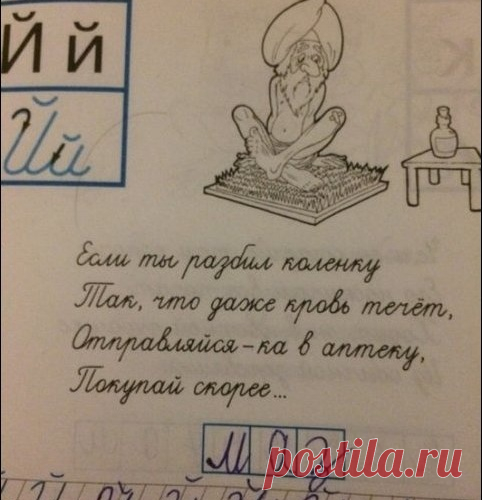 Й й
Й й
Если ты разбил коленку
Так, что даже кровь течёт,
Отправляйся-ка в аптеку,
Покупай скорее...
postila.ru